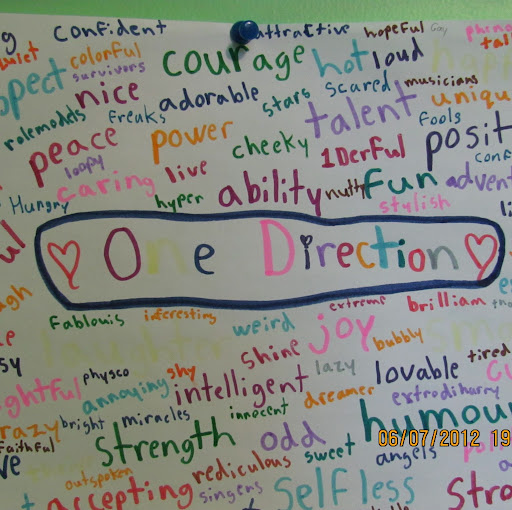 confident attractive hopeful Gay
quiet colorful courage hot loud happy
survivors
nice adorable stars scared musicians
rolemodels freaks talent unique
peace power cheeky fools
loopy 1DerFul
caring live ability nutty fun
Hungry hyper stylish
One Direction
extreme brilliam
Fablouis interesting weird joy
laughter shine bubbly
physco shy lazy lovable tired
annoying intelligent dreamer extrodiharry
bright miracles innocent humour
crazy
faithful strength odd sweet angels
06/07/2012 19
outspoken rediculous
accepting singers Selfless